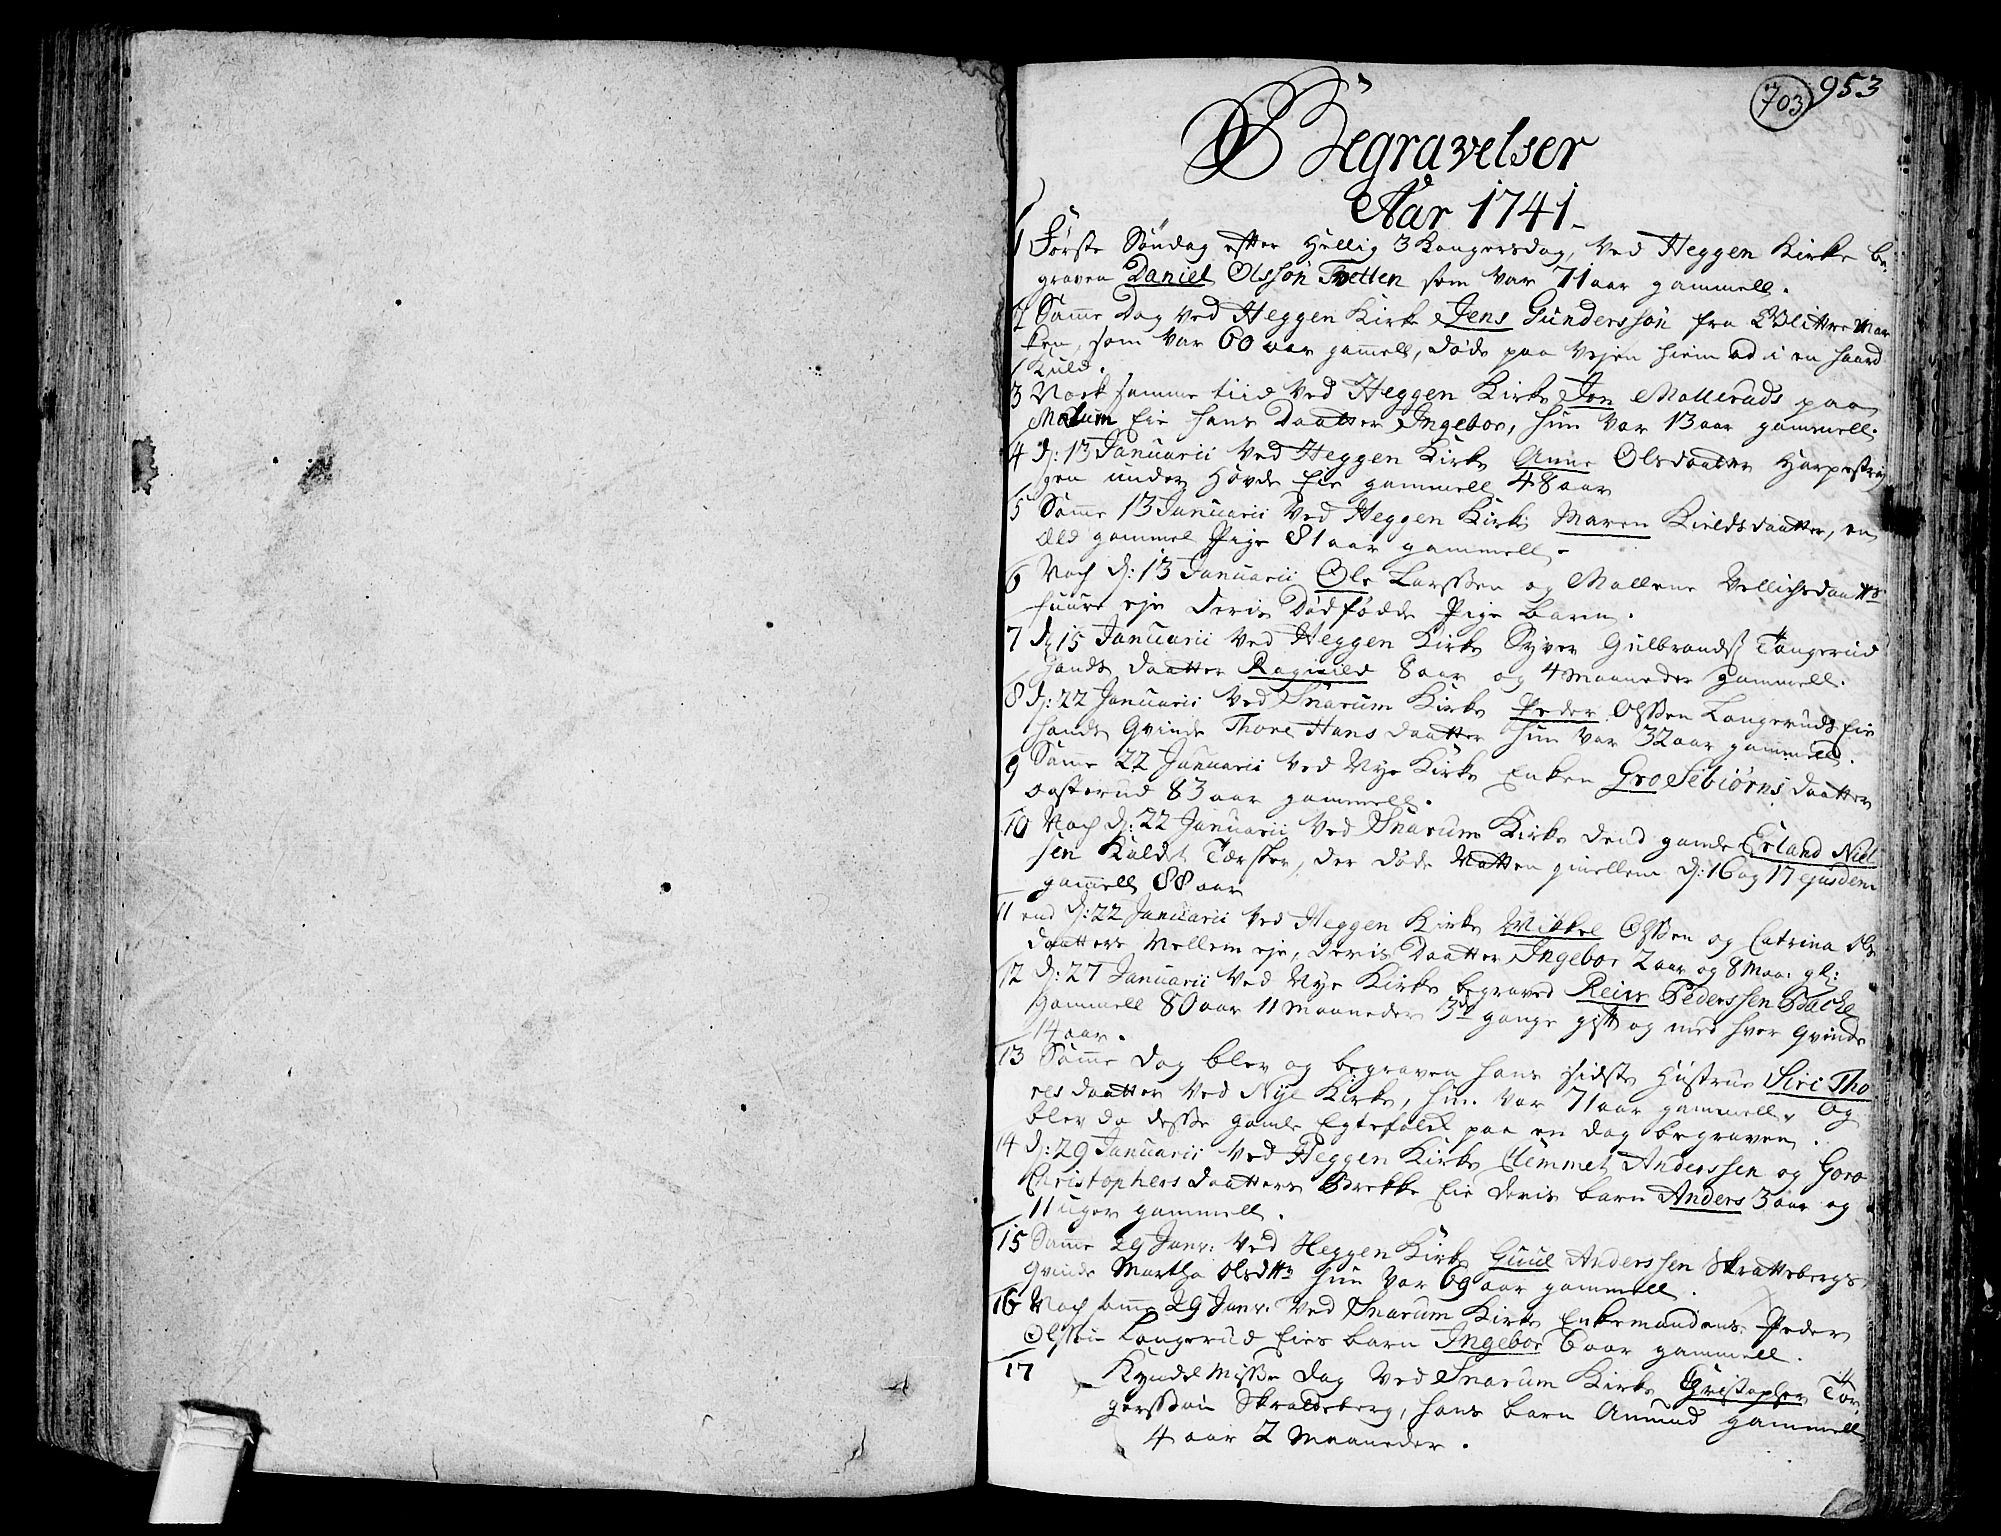 703 953
Begravelser
Aar 1741
1 Første Søndag efter Hellig 3 Kongersdag, ved Heggen Kirke be¬
graven Daniel Olssøn Tvetten som var 71 aar gammell.
2 Samme Dag ved Heggen Kirke Jens Gunderssøn fra
som var 60 aar gamell, døde paa Vejen hiem ad i en haard
Kuld.
3 Nock samme tiid ved Heggen Kirke Jon Molleruds paa
Modum Eie hans Daatter Ingebor, hun var 13 aar gammell.
4 d: 13 Januarii ved Heggen Kirke Anne Olsdaatter
under Hovde Eie gammell 48 aar
5 Samme 13 Januarii ved Heggen Kirke Maren Kieldsdaatter, en
æld gammel Pige 81 aar gammell.
6 Noch d: 13 Januarii Ole Larssen og Mallene
eje deris Dødfødde Pige barn.
7 d. 15 Januarii ved Heggen Kirke Syver Gulbrands Tangerud
hands daatter Ragnild 8 aar og 4 Maaneder gammell.
8 d: 22 Januarii ved Snarum Kirke Peder Olssen Langeruds Eie
hands Qvinde Thore Hans daatter hun var 32 aar gammell.
9 Same 22 Januarii ved Nye Kirke Enken Gro Sebiørns daatter
83 aar gammell.
10 Noch d: 22 Januarii ved Snarum Kirke dend gamle Erland Niel
sen Kaldet Tærsker, der døde Natten imellem d: 16 og 17 ejusdem
gamell 88 aar
11 end d: 22 Januarii ved Heggen Kirke Mikkel Olssen og Catrina Ols
daatters Mellem eje, deris Daatter Ingebor 2 aar og 8 Maa: gl:
12 d: 27 Januarii ved Nye Kirke begraved Reier Pederssen Bache
Gammell 80 aar 11 Maaneder 3de gange gift og med hver Qvinde
14 aar.
13 Samme dag blev og begraven hans sidste Hustrue Siri Tho
res daatter ved Nye Kirke, hun var 71 aar gammell, og
blev da desse gamle Egtefolck paa en dag begraven.
14 d: 29 Januarii ved Heggen Kirke Clemmet Anderssen og Goro
Christophers daatters Brekke Eie deris barn Anders 3 aar og
11 uger gammell.
15 Samme 29 Janr: ved Heggen Kirke Guul Anderssen Skrattebergs
Qvinde Martha Olsdttr hun var 69 aar gammell.
16 Noch samme 29 Janr. ved Snarum Kirke Enkemandens Peder
Olssøn Langerud Eies barn Ingebor 6 aar gammell.
17 Kyndel Misse dag ved Snarum Kirke Christopher Tor
gerssøn Skraldsberg, hans barn Amund gammell
4 aar 2 Maaneder.